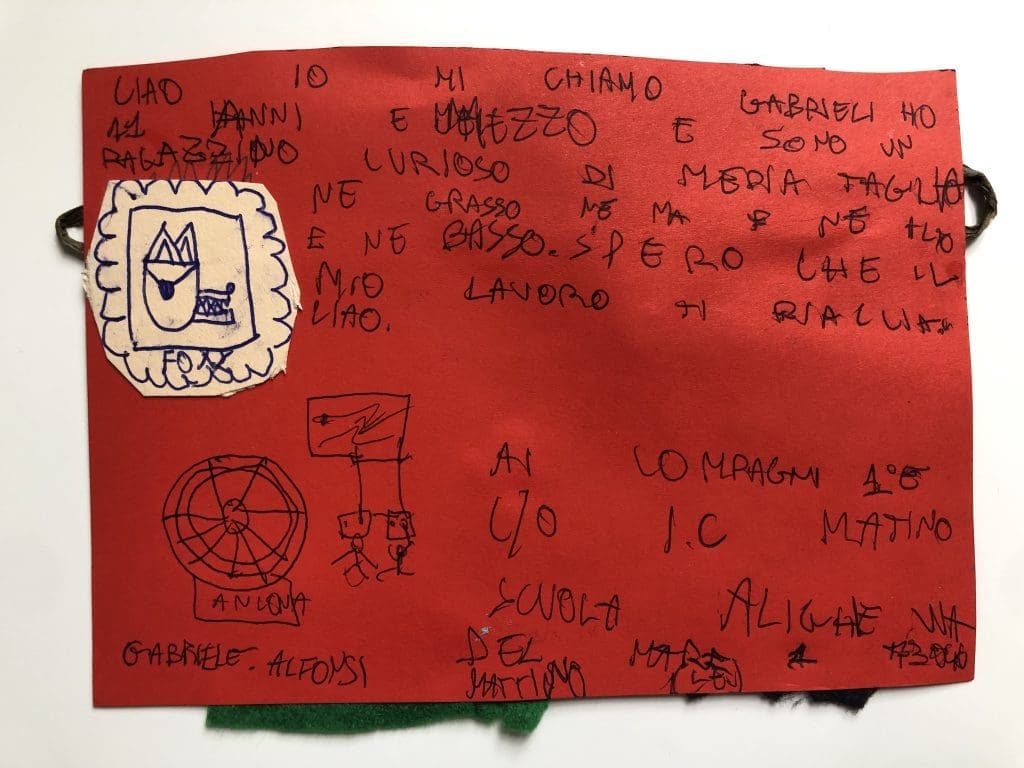 CIAO IO MI CHIAMO GABRIELI HO
11 ANNI E MEZZO E SONO UN
RAGAZZINO CURIOSO DI MEDIA TAGLIO
NE GRASSO NE MA E NE
E NE BASSO. SPERO CHE IL
MIO LAVORO TI PIACCIA.
CIAO.
FOX
AI COMPAGNI 1°E
C/O I.C MATINO
ANCONA
SCUOLA ALIGHE
GABRIELE. ALFONSI
DEL MARE 1
MATTINO (LE)